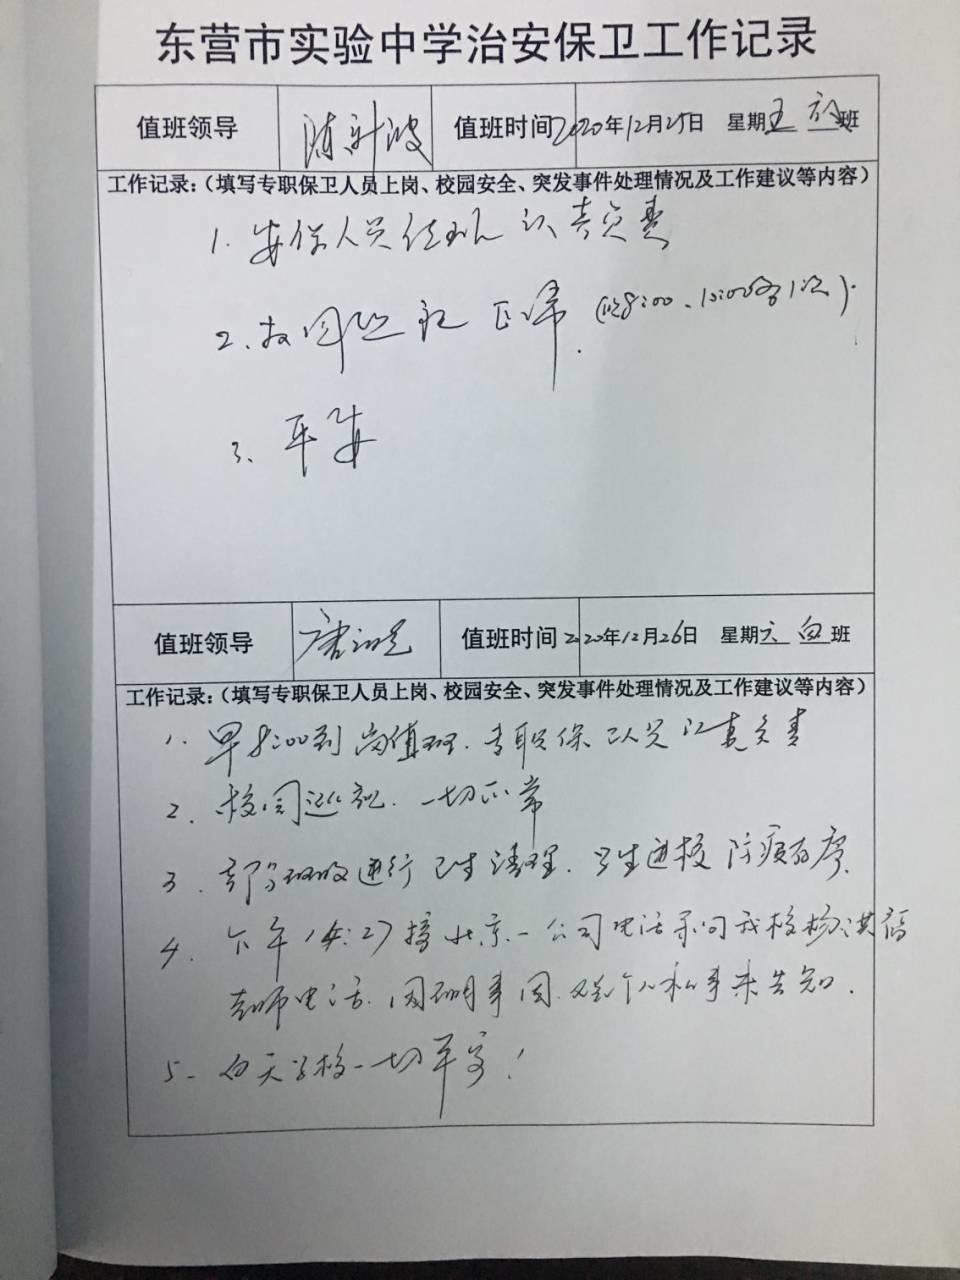 东营市实验中学治安保卫工作记录
值班领导 陈新波 值班时间 2020年12月25日 星期五 夜班
工作记录：（填写专职保卫人员上岗、校园安全、突发事件处理情况及工作建议等内容）
1. 安保人员值班认真负责
2. 校园巡视正常（晚8:00、10:00各1次）.
3、平安
值班领导 值班时间 2020年12月26日 星期六 白班
工作记录：（填写专职保卫人员上岗、校园安全、突发事件处理情况及工作建议等内容）
1. 早8:00到岗值班. 专职保卫人员认真负责
2. 校园巡视. 一切正常
3. 部分班级进行卫生清理. 学生进校防疫有序.
4. 下午14:27接北京一公司电话 问我校杨洪福
老师电话. 因 事因. 又是个人私事未告知.
5. 白天学校一切平安！